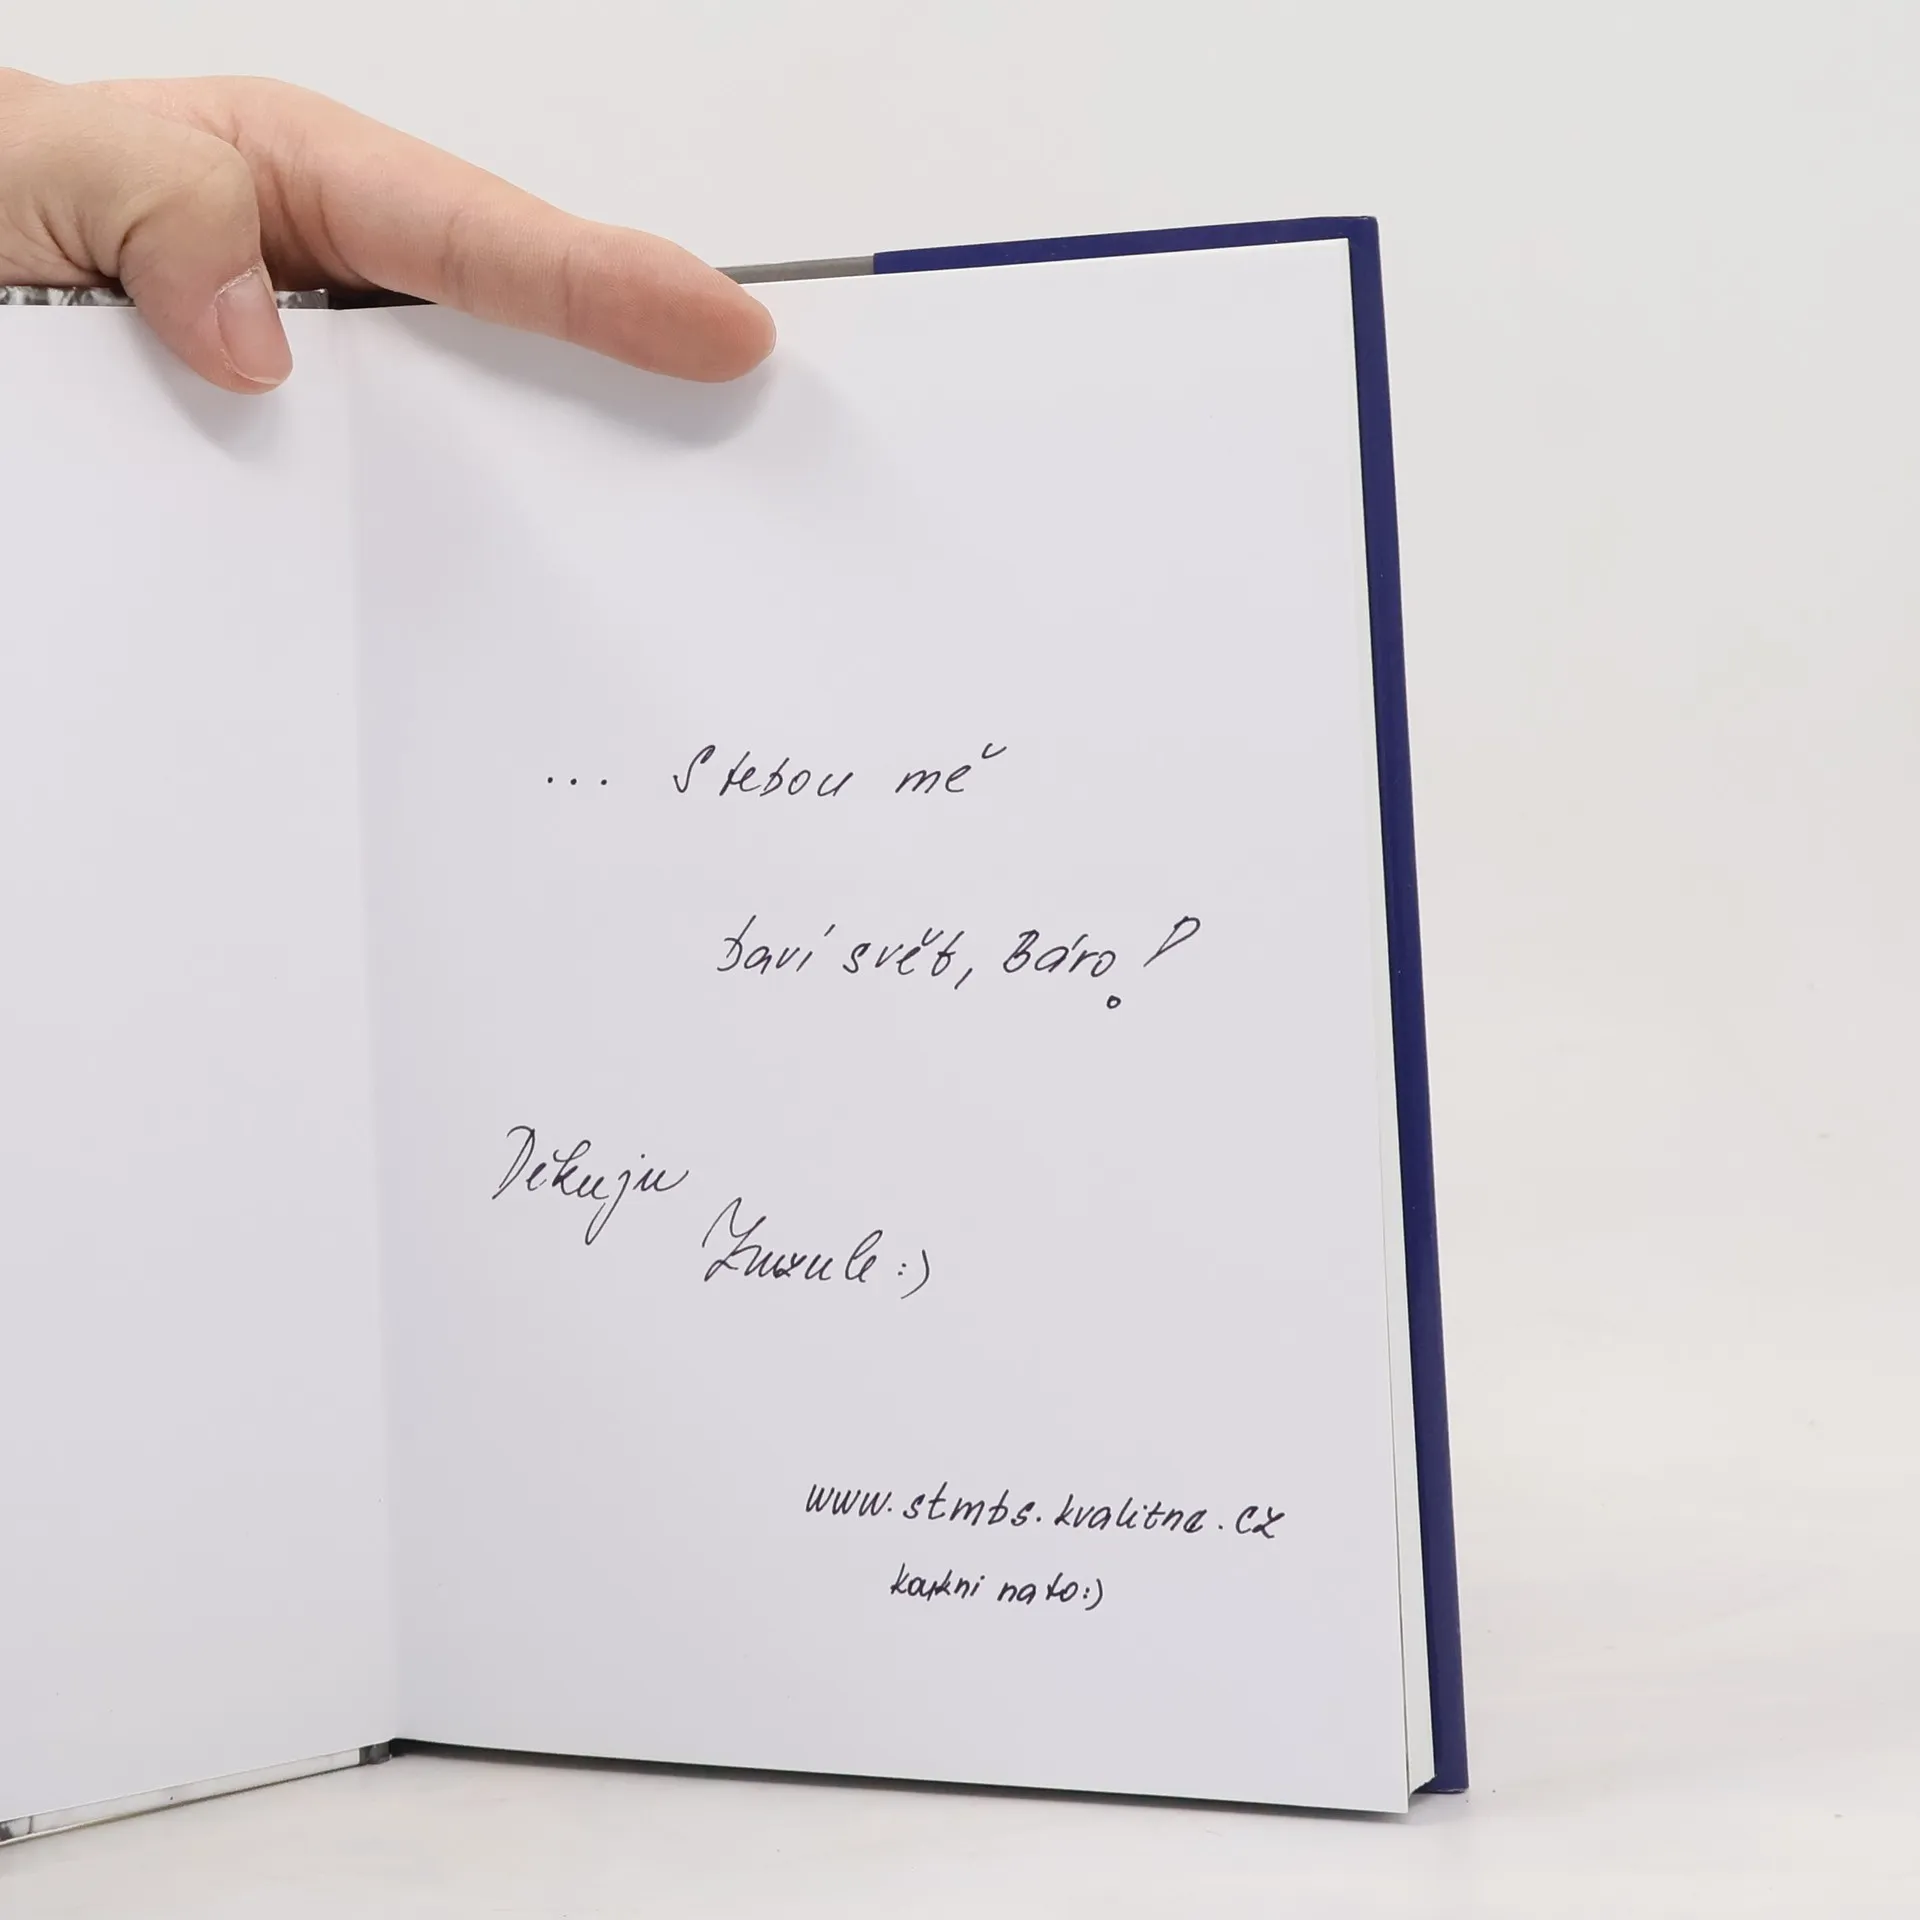 ... S tebou mě
baví svět, Báro!
Děkuju
Zuzule :)
www.stmbs.kvalitne.cz
koukni na to:)